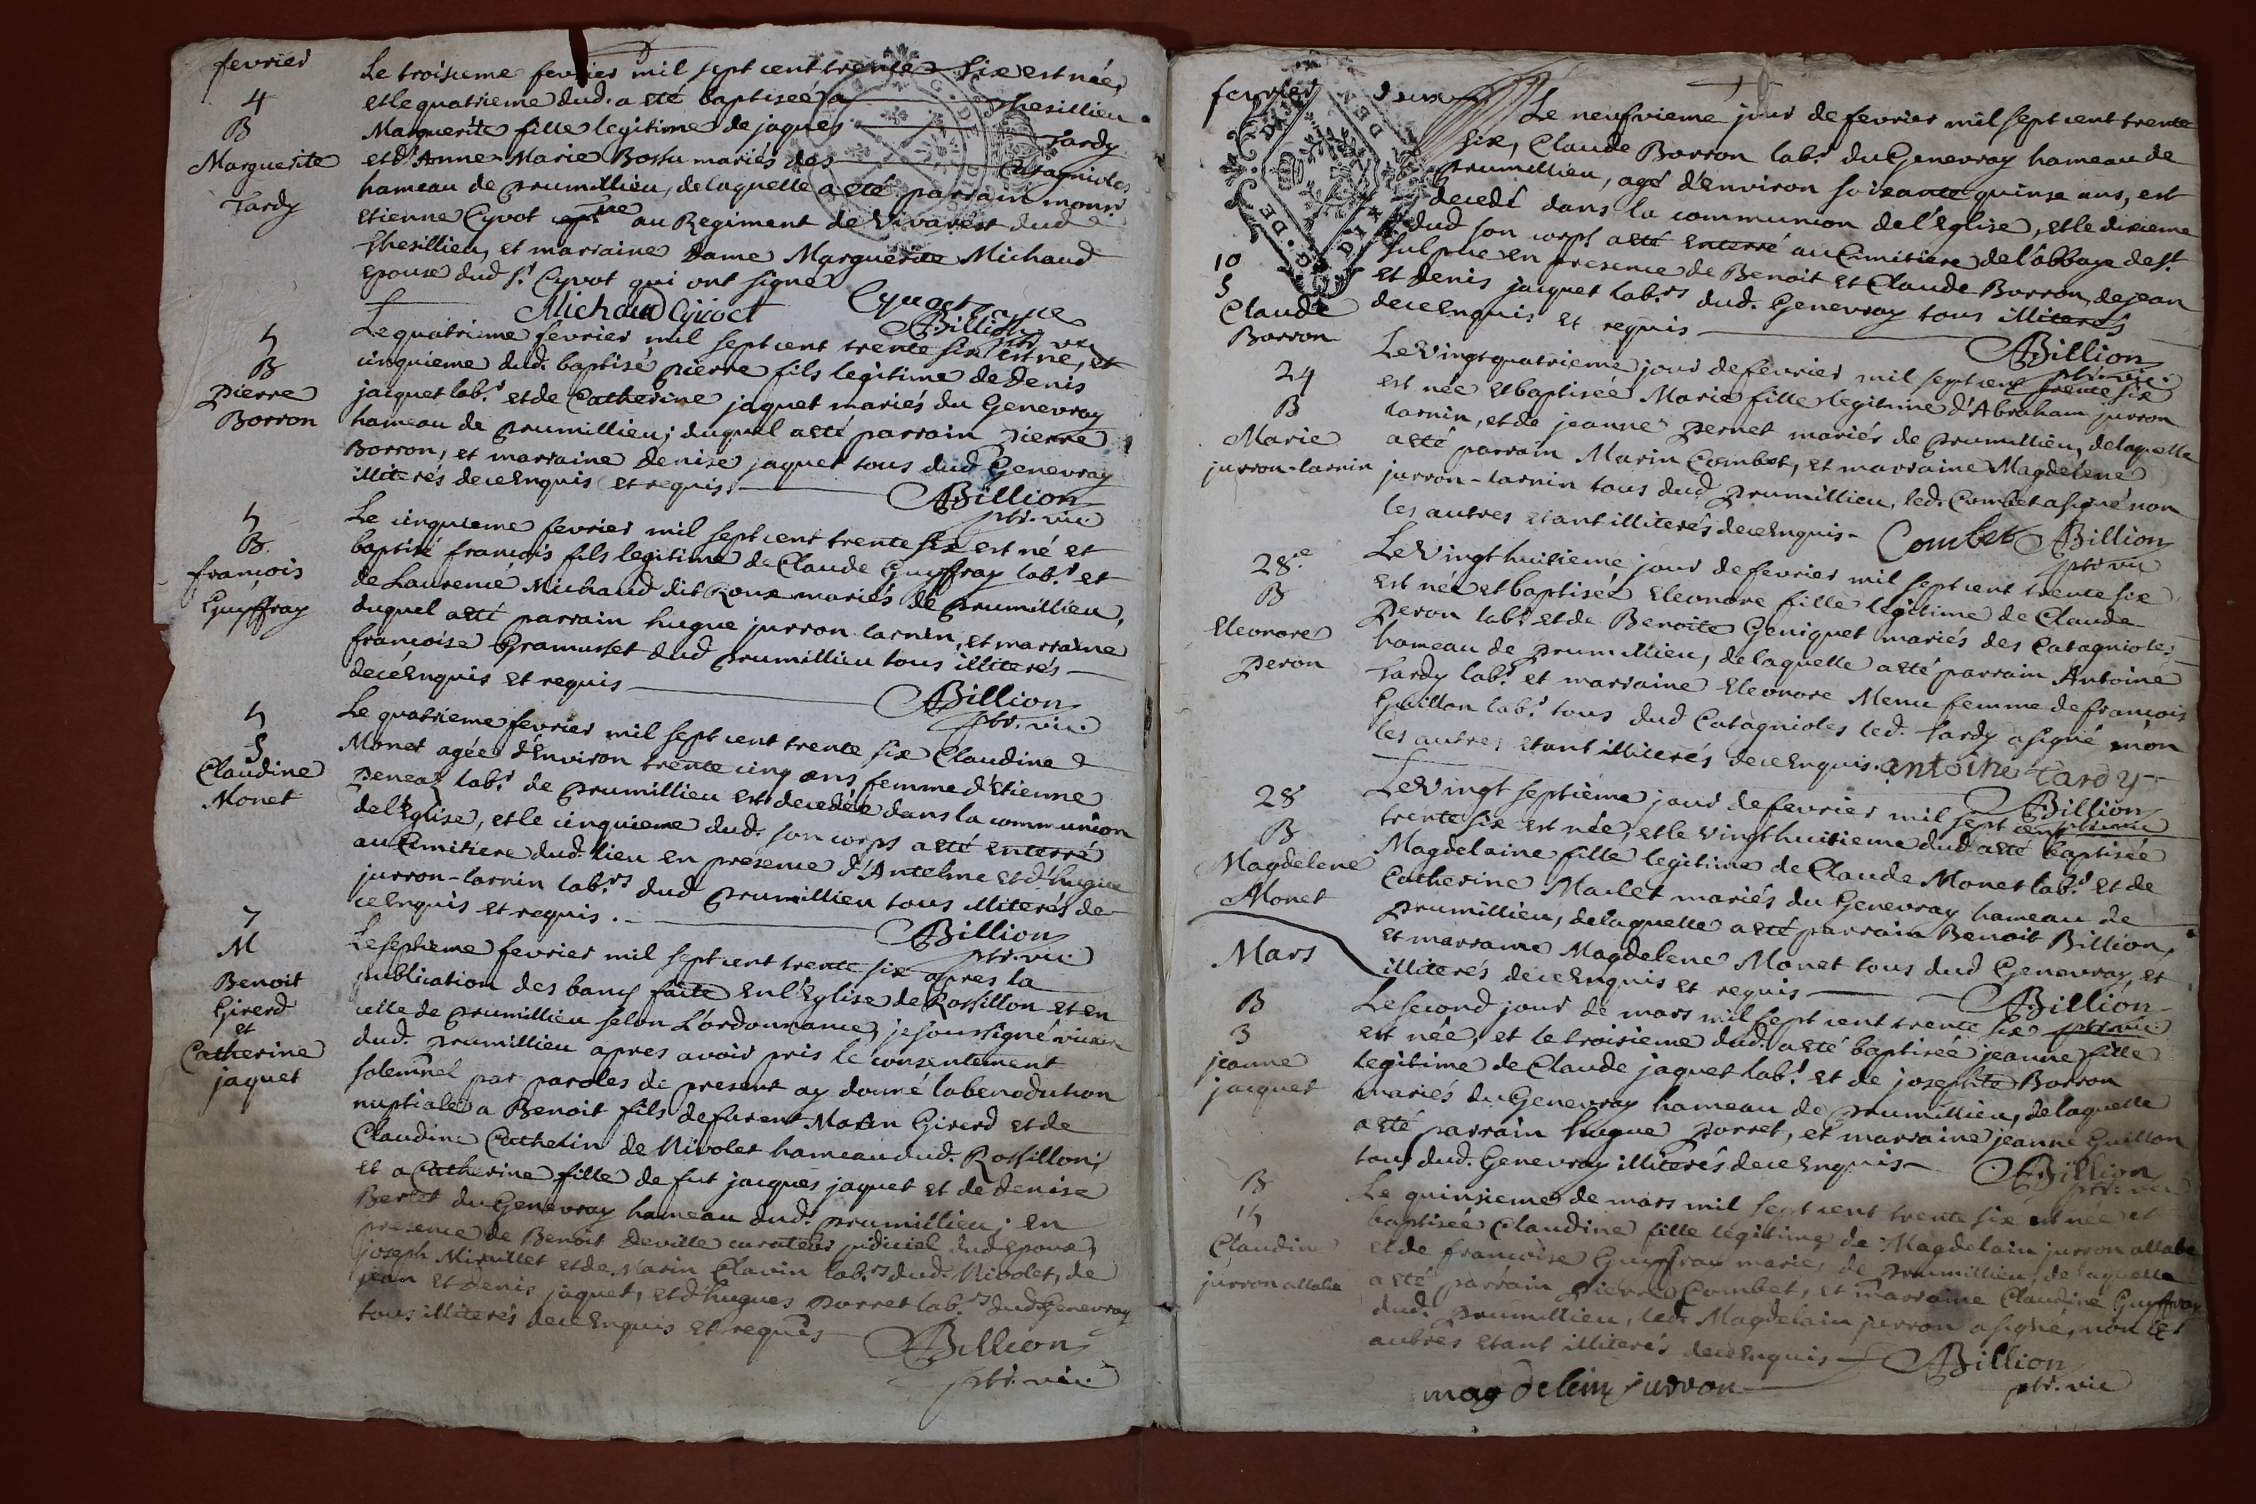 fevrier
4
B
Marguerite
Tardy
Le troisieme fevrier mil sept cent trente six est née,
et le quatrieme dud. a eté baptiseé a Thesillieu
Marguerite fille legitime de jaques Tardy
et d'Anne-Marie Bossu mariés des Catagnioles
hameau de prumillieu, de laquelle a eté parrain monsr
Etienne Cyvot au Regiment de Vivarest dud
Thesillieu, et marraine Dame Marguerite Michaud
epouse dud sr. Cyvot qui ont signe
Michaud Cyvoct
Billion
ptr. vic.
5
B
Pierre
Borron
Le quatrieme fevrier mil sept cent trente six est né, et
cinquieme dud. baptisé pierre fils legitime de Denis
jacquet labr. et de Catherine jaquet mariés du Genevray
hameau de prumillieu; duquel a eté parrain Pierre
Borron, et marraine Denise jaquet tous dud Genevray
illiterés de ce Enquis et requis.
Billion
ptr. vic.
5
B.
françois
Guyffray
Le cinquieme fevrier mil sept cent trente six est né et
baptisé françois fils legitime de Claude Guyffray labr. et
de Laurence Michaud dit Roux mariés de prumillieu,
duquel a eté parrain hugue jurron-larnin, et marraine
françoise Gramusset dud prumillieu tous illiterés
de ce Enquis et requis
Billion
ptr. vic.
5
S
Claudine
Monet
Le quatrieme fevrier mil sept cent trente six Claudine
Monet agée d'Environ trente cinq ans femme d'Etienne
Peneaz labr. de prumillieu est decedée dans la communion
de l'Eglise, et le cinquieme dud. son corps a eté enterré
au Cimitiere dud. lieu en presence d'Antelme et d'hugue
jurron-larnin labrs. dud prumillieu tous illiterés de
ce Enquis et requis.
Billion
ptr. vic.
7
M
Benoit
Girerd
et
Catherine
jaquet
Le septieme fevrier mil sept cent trente six apres la
publication des bancs faite En l'Eglise de Rossillon et en
celle de prumillieu selon L'ordonnance, je soussigné vicaire
dud. prumillieu apres avoir pris le consentement
solemnel par paroles de present ay donné la benediction
nuptiale a Benoit fils de furent Marin Girerd et de
Claudine Cathelin de Nivolet hameau dud. Rossillon;
et a Catherine fille de fut jacques jaquet et de Denise
Berlet du Genevray hameau dud. prumillieu; en
presence de Benoit Deville curateur judiciel dud epoux,
joseph Mirullet et de Marin Clavin labrs. dud. Nivolet, de
jean et Denis jaquet, et d'hugues porret labrs. dud. Genevray
tous illiterés de ce Enquis et requis
Billion
ptr. vic.
fevrier deux
10
S
Claude
Borron
Le neufvieme jour de fevrier mil sept cent trente
six, Claude Borron labr. du Genevray hameau de
prumillieu, agé d'environ soixante quinze ans, est
decedé dans la communion de l'Eglise, et le dixieme
dud son corps a eté enterré au Cimitiere de l'abbaye de St.
sulpice en presence de Benoit et Claude Borron, de jean
et Denis jacquet labrs. dud. Genevray tous illiterés
de ce Enquis et requis
Billion
ptr. vic.
24
B
Marie
jurron-larnin
Le Vingt quatrieme jour de fevrier mil sept cent trente six
est née et baptisée Marie fille legitime d'Abraham jurron
larnin, et de jeanne pernet mariés de prumillieu, de laquelle
a eté parrain Marin Combet, et marraine Magdelene
jurron-larnin tous dud prumillieu, led. Combet a signé non
les autres etant illiterés de ce Enquis
Combet Billion
ptr. vic
28e.
B
Eleonore
Peron
Le Vingt huitieme jour de fevrier mil sept cent trente six
est née et baptisée Eleonore fille legitime de Claude
Peron labr. et de Benoite Geniquet mariés des Catagnioles
hameau de prumillieu, de laquelle a eté parrain Antoine
Tardy labr. et marraine Eleonore Menu femme de françois
Guillon labr. tous dud Catagnioles led. Tardy a signé non
les autres etant illiterés de ce Enquis. antoine Tardy
Billion
ptr. vic
28
B
Magdelene
Monet
Le Vingt septieme jour de fevrier mil sept cent
trente six est née, et le vingt huitieme dud. a eté baptisée
Magdelaine fille legitime de Claude Monet labr. et de
Catherine Maclet mariés du Genevray hameau de
prumillieu, de laquelle a eté parrain Benoit Billion,
et marraine Magdelene Monet tous dud Genevray, et
illiterés de ce Enquis et requis
Billion
ptr. vic
Mars
B
3
jeanne
jacquet
Le second jour de mars mil sept cent trente six
est née, et le troisieme dud. a eté baptisée jeanne fille
legitime de Claude jaquet labr. et de josephte Borron
mariés du Genevray hameau de prumillieu, de laquelle
a eté parrain hugue porret, et marraine jeanne Guillon
tous dud. Genevray illiterés de ce Enquis
Billion
ptr. vic
B
15
Claudine
jurron allabe
Le quinsieme de mars mil sept cent trente six est née et
baptisée Claudine fille legitime de Magdelain jurron allabe
et de françoise Guyffray mariés de prumillieu, de laquelle
a eté parrain Pierre Combet, et marraine Claudine Guyffray
dud. prumillieu, led. Magdelain jurron a signé, non les
autres etant illiterés de ce Enquis
Billion
ptr. vic
magdelein jurron